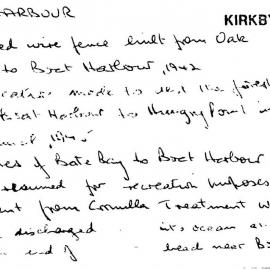 HARBOUR KIRKBY
ed wire fence built from Oak
to Boat Harbour, 1942
made to
Boat Harbour to Hungry Point in
1945
es of Bate Bay to Boat Harbour
resumed for recreation purposes
ent from Cronulla Treatment W
discharged its ocean
end of head near B